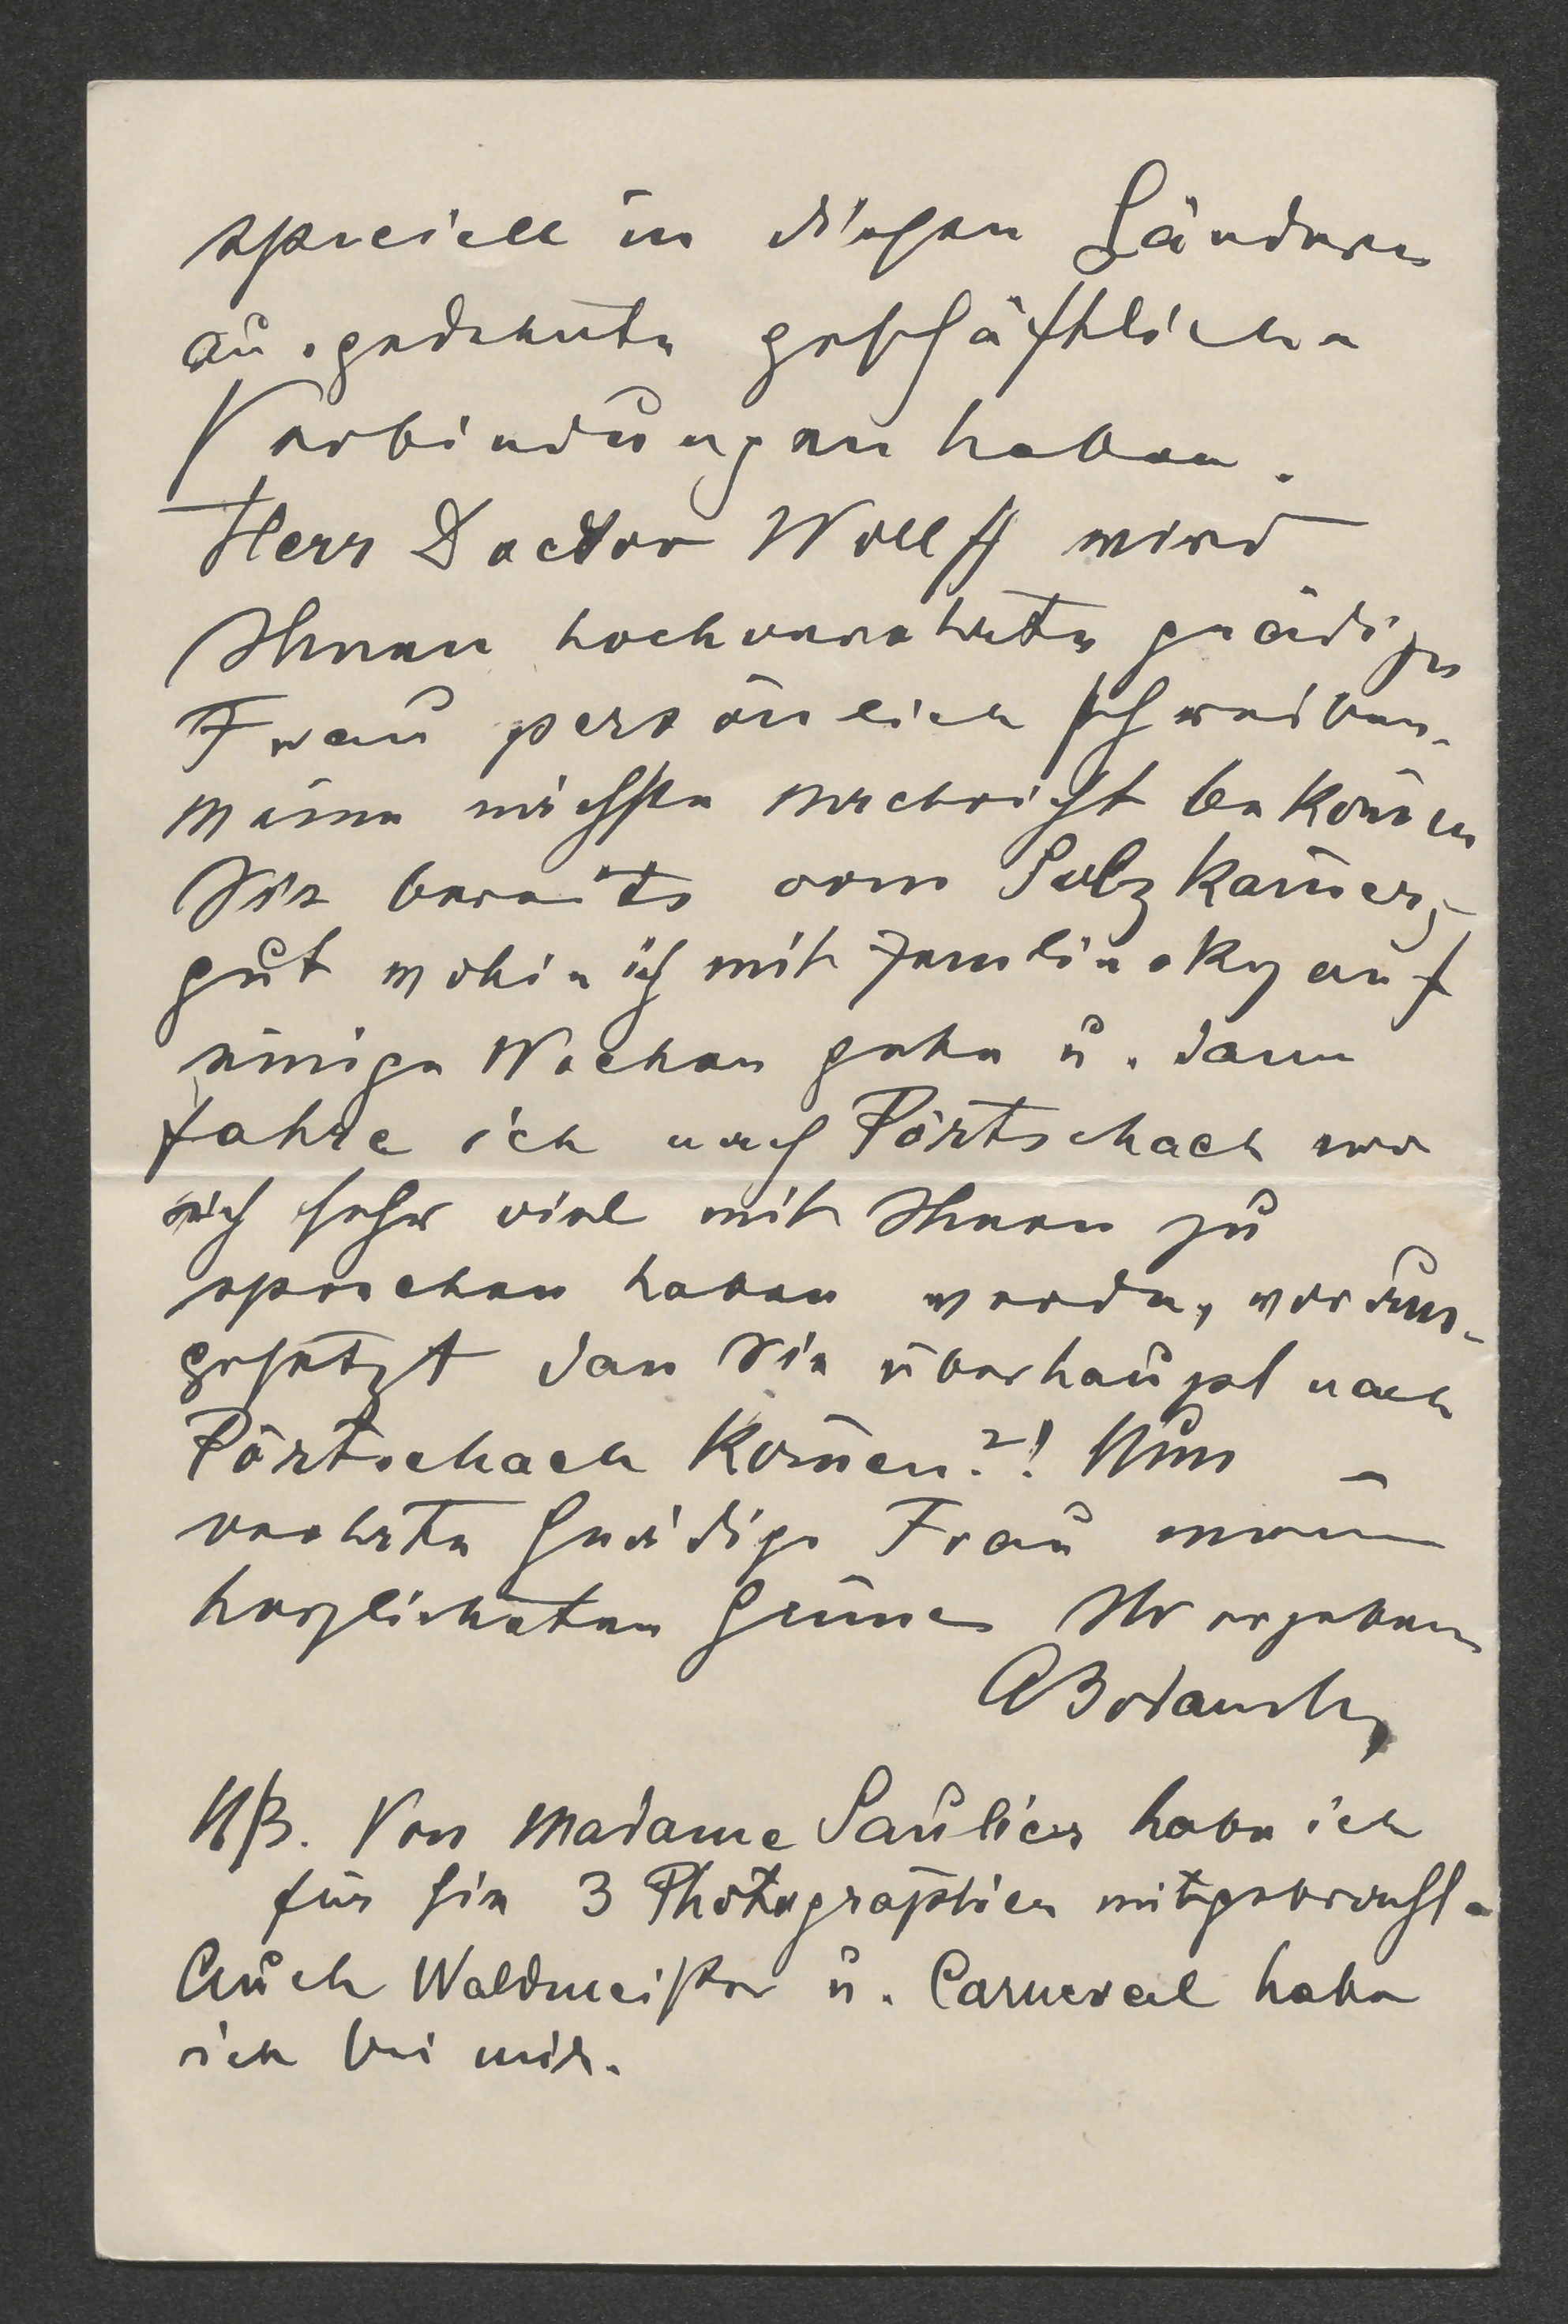 speciell in diesen Ländern
ausgedehnte geschäftliche
Verbindungen haben.
Herr Doctor Wollff wird
Ihnen hochverehrte gnädige
Frau persönlich schreiben.
Meine nächste Nachricht bekom̄en
Sie bereits vom Salzkam̄er-
gut wohin ich mit Zemlinsky auf
einige Wochen gehe u. dann
fahre ich nach Pörtschach wo
ich sehr viel mit Ihnen zu
sprechen haben werde, voraus-
gesetzt dass Sie überhaupt nach
Pörtschach kom̄en?! Nun
verehrte Gnädige Frau meine
herzlichsten Grüsse Ihr ergebener
ABodanzky
NB. Von Madame Saulier habe ich
für Sie 3 Photographien mitgebracht.
Auch Waldmeister u. Carneval habe
ich bei mir.